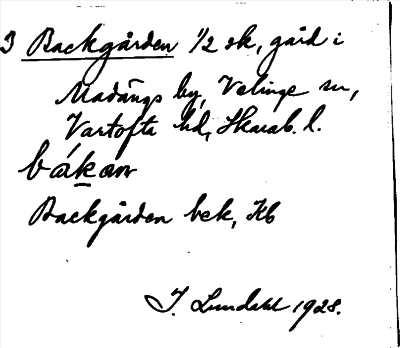 3 Backgården 1/2 sk, gård i
Madängs by, Valinge sn,
Vartofta hd, Skarab. l.
bákan
Backgården bek, Kb
J. Lundahl 1928.